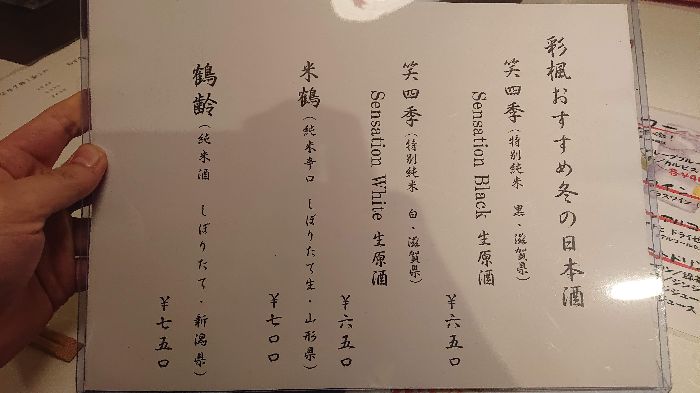 彩楓おすすめ冬の日本酒
笑四季（特別純米　黒・滋賀県）
Sensation Black 生原酒
￥六五〇
笑四季（特別純米　白・滋賀県）
Sensation White 生原酒
￥六五〇
米鶴（純米辛口　しぼりたて生・山形県）
￥七〇〇
鶴齢（純米酒　しぼりたて・新潟県）
￥七五〇